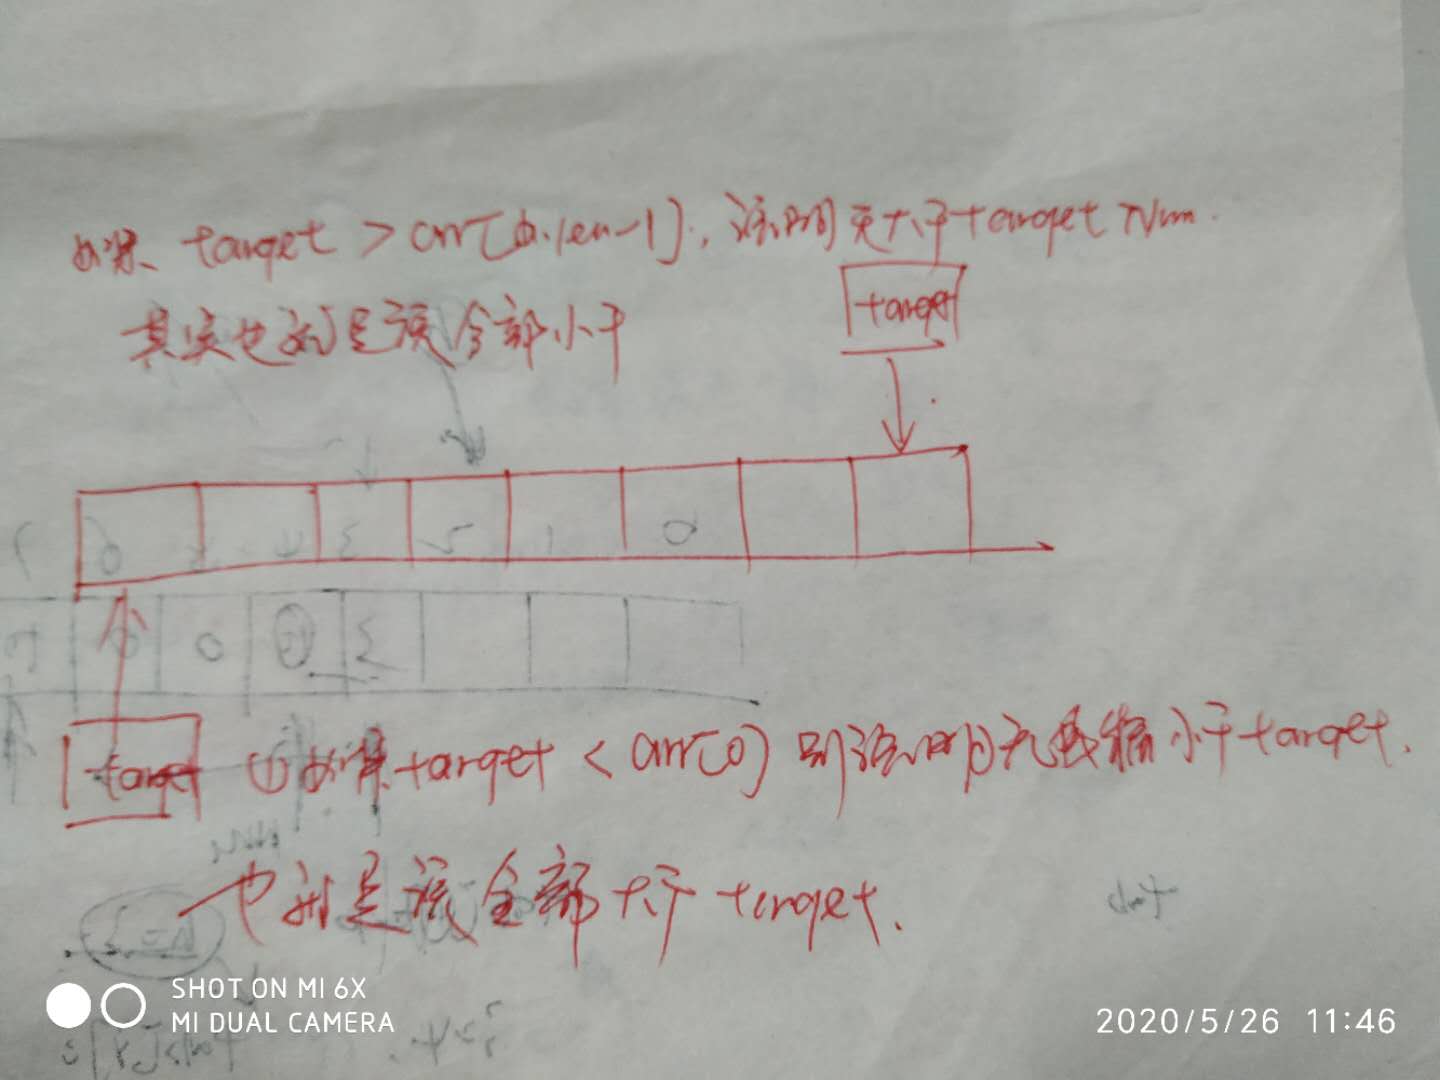 如果 target > arr[a.len-1], 说明 大于target Num.
其实也就是说全部小于
target
target ①如果target < arr[0) 则说明 小于target.
也就是说全部大于target.
SHOT ON MI 6X
MI DUAL CAMERA
2020/5/26 11:46